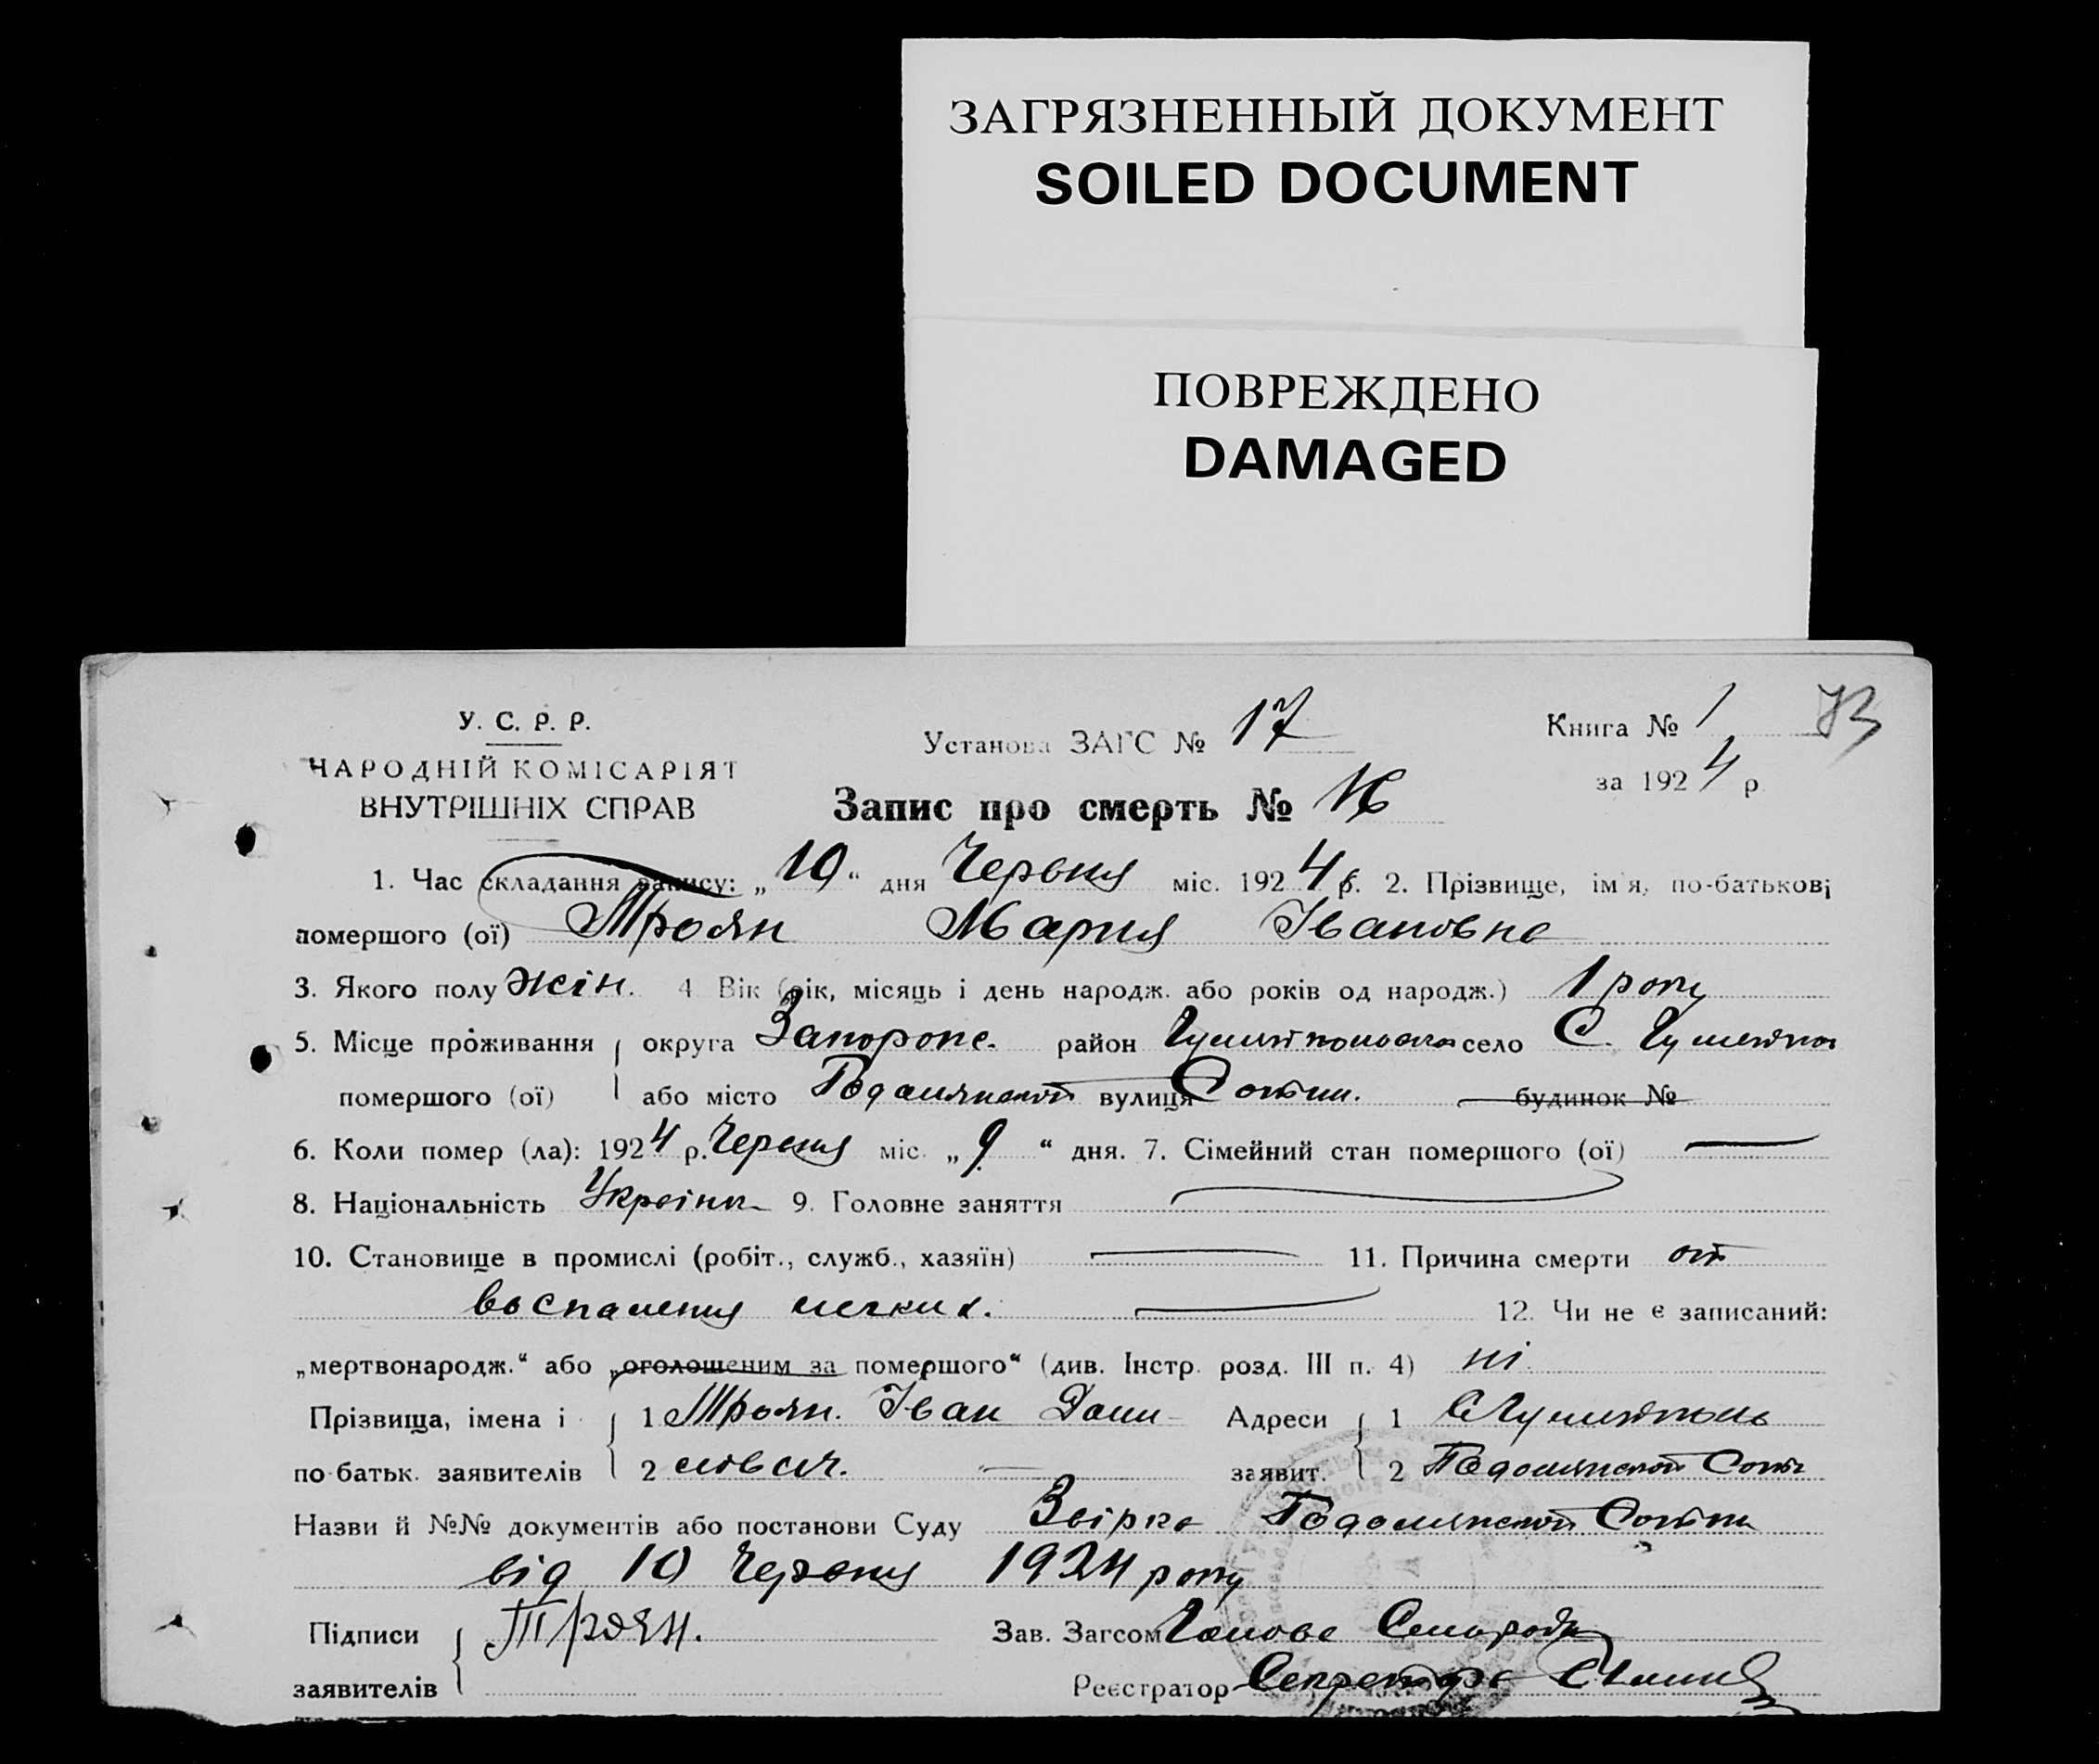 ЗАГРЯЗНЕННЫЙ ДОКУМЕНТ
SOILED DOCUMENT
ПОВРЕЖДЕНО
DAMAGED
У. С. Р. Р.
НАРОДНІЙ КОМІСАРІЯТ
ВНУТРІШНІХ СПРАВ
Установа ЗАГС № 17
Книга № 1 73
за 1924 р.
Запис про смерть № 16
1. Час складання запису: „10“ дня Червня міс. 1924 р. 2. Прізвище, ім'я, по-батькові
помершого (ої) Троян Мария Івановна
3. Якого полу жін. 4 Вік (рік, місяць і день народж. або років од народж.) 1 року
5. Місце проживання округа Запорож. район село С.
помершого (ої) або місто вулиця Сотни. будинок №
6. Коли помер (ла): 1924 р. Червня міс. „9“ дня. 7. Сімейний стан помершого (ої) —
8. Національність Україн. 9. Головне заняття
10. Становище в промислі (робіт., служб., хазяїн) — 11. Причина смерти от
воспаления легких. — 12. Чи не є записаний:
„мертвонародж.“ або „оголошеним за помершого“ (див. Інстр. розд. III п. 4) ні
Прізвища, імена і 1 Троян. Іван Дани- Адреси 1
по-батьк. заявителів 2 лович. — заявит. 2 Сотн
Назви й №№ документів або постанови Суду Звірка Сотни
від 10 Червня 1924 року
Підписи Троян. Зав. Загсом Голова
заявителів Реєстратор Секретарь